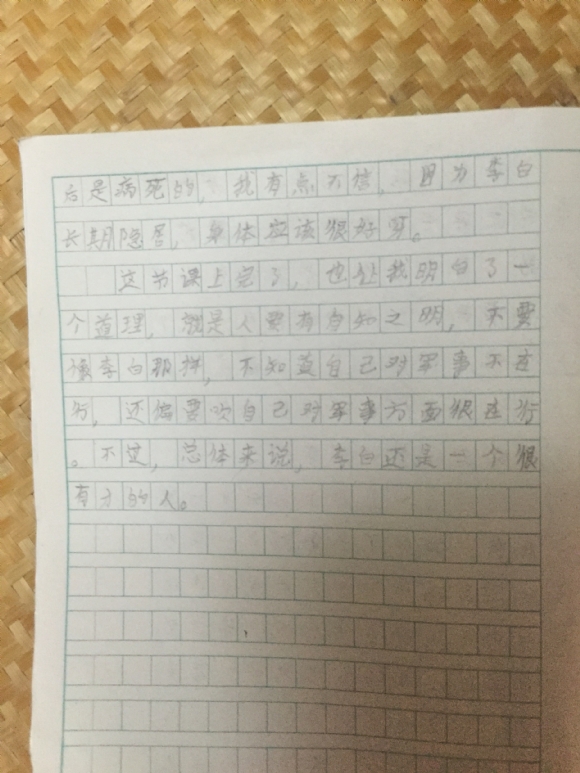 后是病死的，我有点不信，因为李白
长期隐居，身体应该很好呀。
这节课上完了，也让我明白了一
个道理，就是人要有自知之明，不要
像李白那样，不知道自己对军事不在
行，还偏要吹自己对军事方面很在行
。不过，总体来说，李白还是一个很
有才的人。